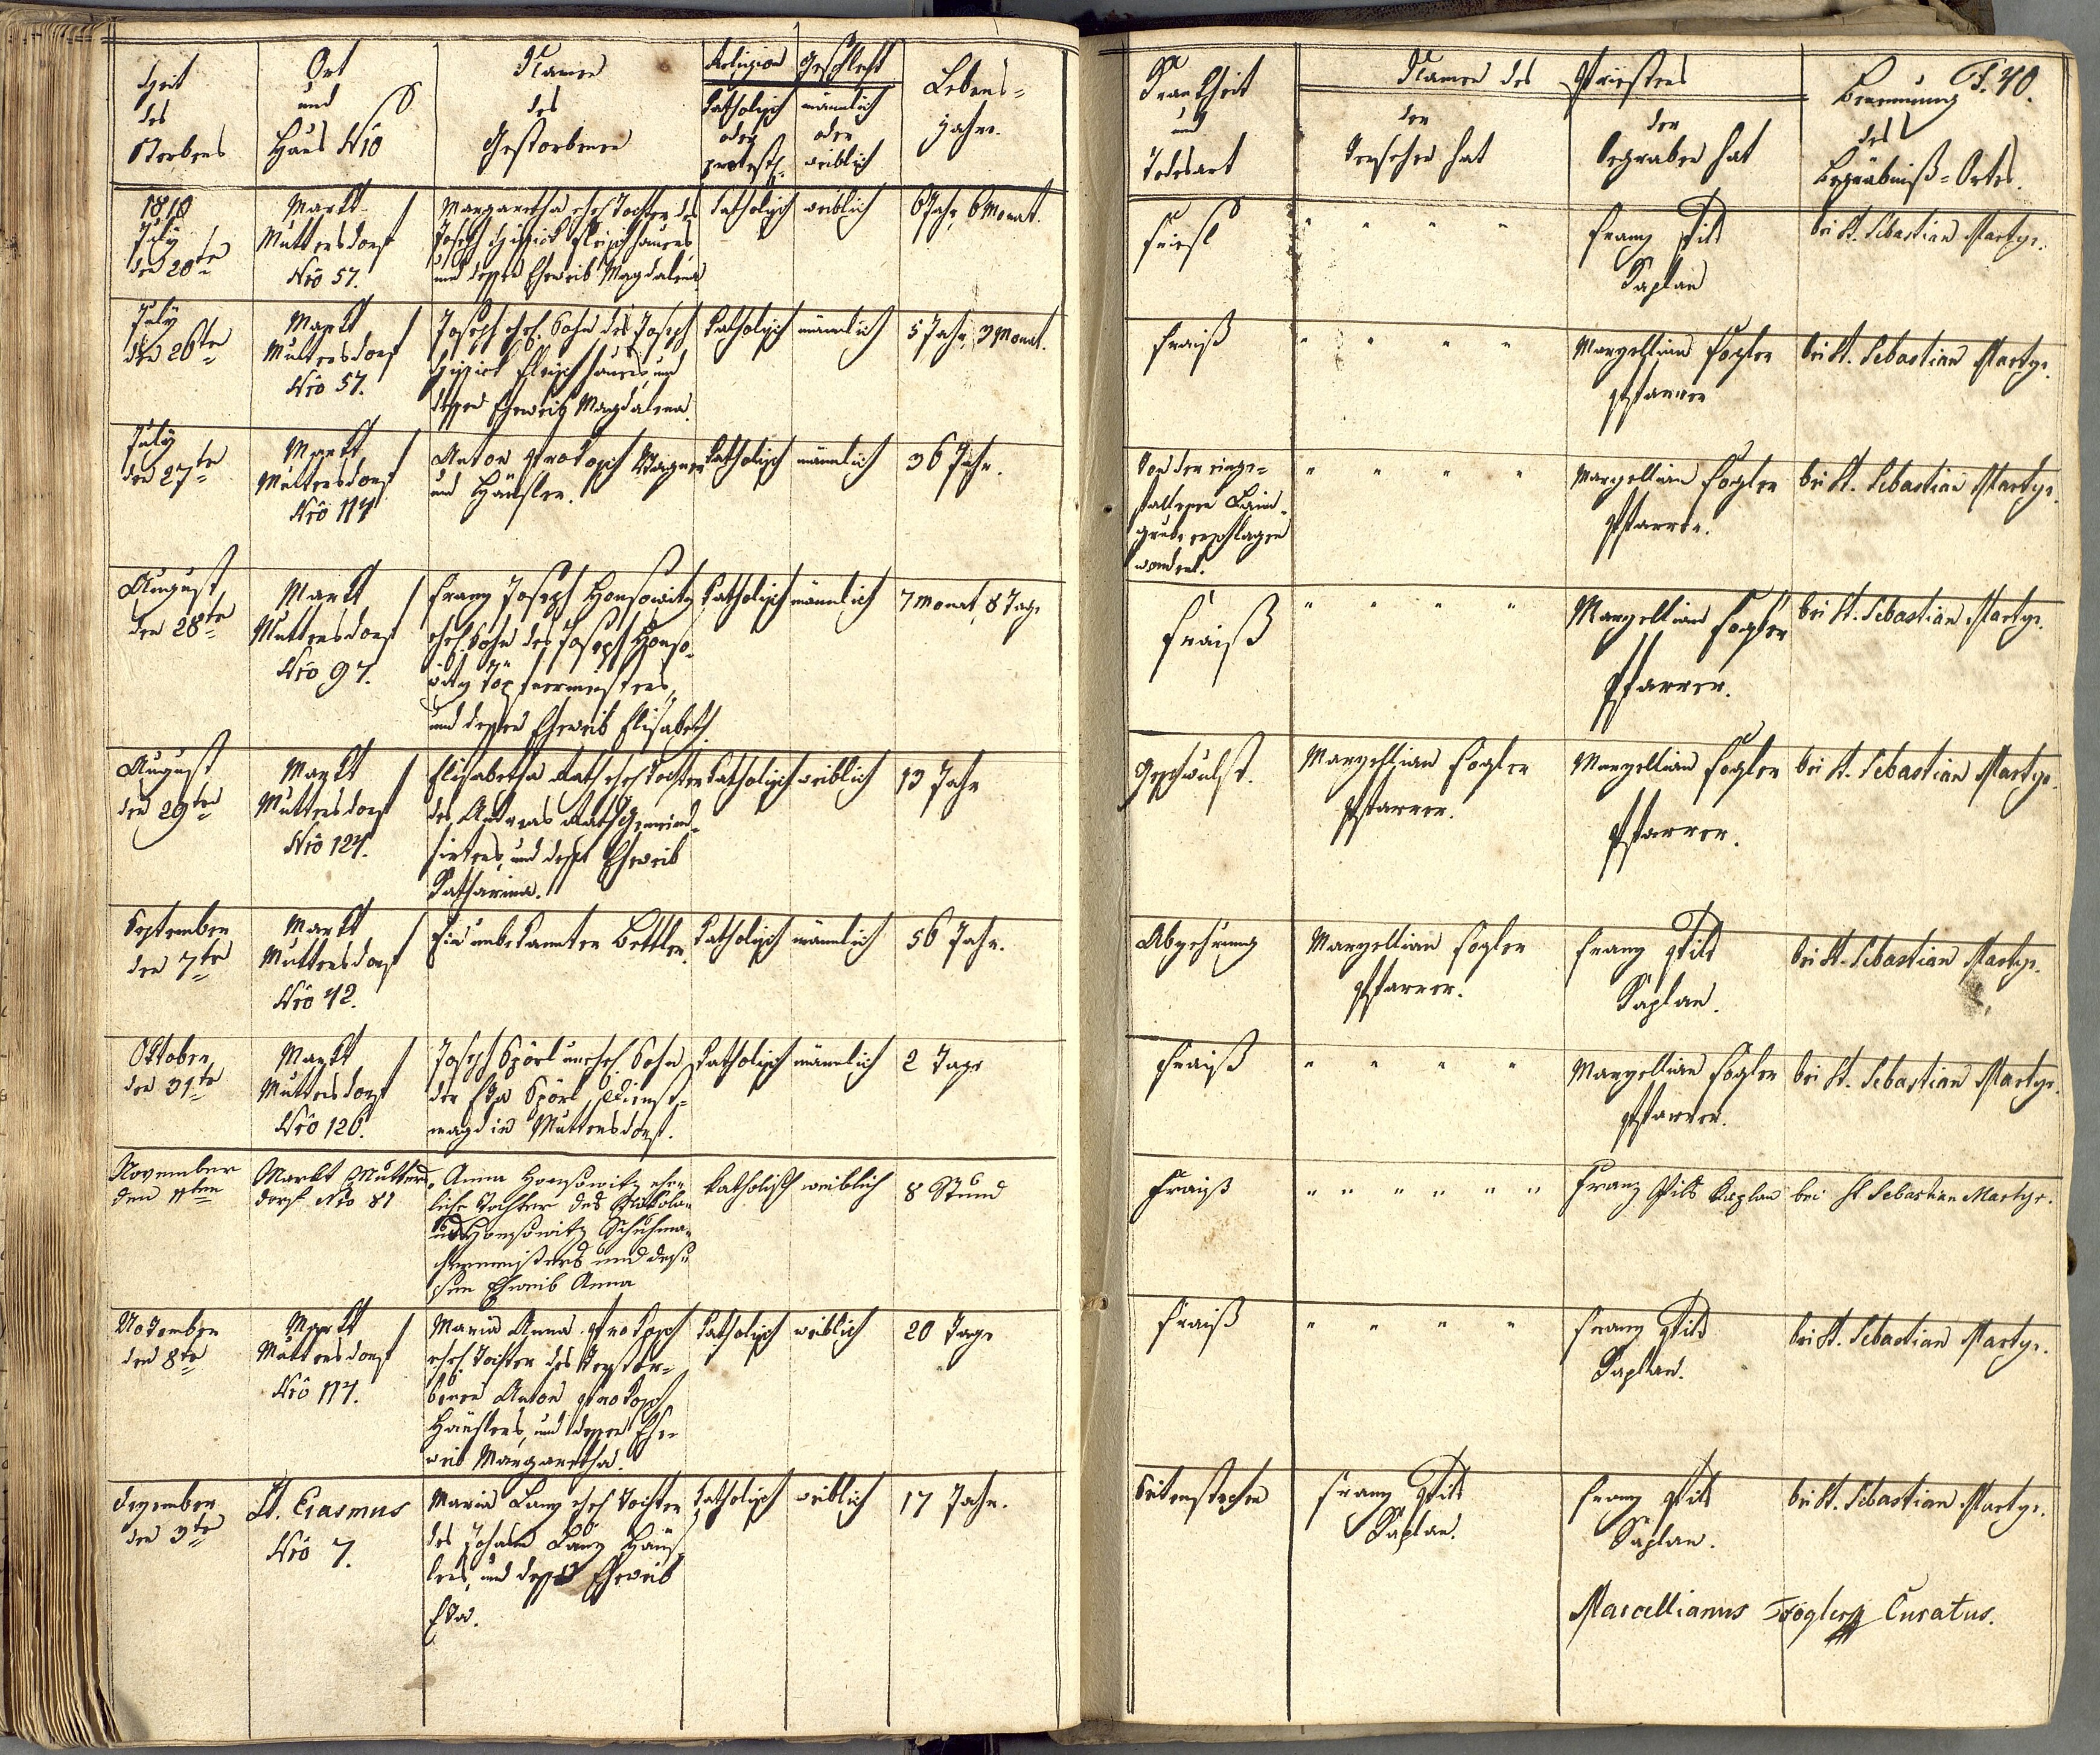 Zeit
des
Sterbens
Ort
und
Haus Nro
Name
des
Gestorbenen
Religion
katholisch
oder
protest.
Geschlecht
männlich
oder
weiblich
Lebens-
jahre.
Krankheit
und
Todesart
Name des Priesters
der
versehen hat
der
begraben hat
F. 40.
Benennung
des
Begräbniß-Ortes.
1810
July
den 20te
Markt
Muttersdorf
Nro 57.
Margaretha ehel. Tochter des
Joseph Fleischhauers
und dessen Eheweib Magdalena
katholisch
weiblich
6 Jahr, 6 Monat.
Franz Pils
Kaplan
bei St. Sebastian Martyr.
July
den 26te
Markt
Muttersdorf
Nro 57.
Joseph ehel. Sohn des Joseph
Fleischhauers, und
dessen Eheweib Magdalena.
katholisch
männlich
5 Jahr, 3 Monat.
Fraiß
" " " "
Marzellian Fogler
Pfarrer
bei St. Sebastian Martyr.
July
den 27te
Markt
Muttersdorf
Nro 114
Anton Prokopf Wagner
und Häusler.
katholisch
männlich
36 Jahr.
Von der einge-
fallenen Laim-
grube erschlagen
worden.
" " " "
Marzellian Fogler
Pfarrer.
bei St. Sebastian Martyr.
August
den 28te
Markt
Muttersdorf
Nro 97.
Franz Joseph Honsowitz
ehel. Sohn des Joseph Honso-
witz Töpfermeisters,
und dessen Eheweib Elisabeth.
katholisch
männlich
7 Monat, 8 Tage
Fraiß
" " " "
Marzellian Fogler
Pfarrer.
bei St. Sebastian Martyr.
August
den 29te
Markt
Muttersdorf
Nro 124.
Elisabetha Rath ehel. Tochter
des Andreas Rath Gemeind-
hirten, und dessen Eheweib
Katharina.
katholisch
weiblich
13 Jahr
Geschwulst.
Marzellian Fogler
Pfarrer.
Marzellian Fogler
Pfarrer.
bei St. Sebastian Martyr.
September
den 7te
Markt
Muttersdorf
Nro 42.
Ein unbekannter Bettler.
katholisch
männlich
56 Jahr.
Abzehrung
Marzellian Fogler
Pfarrer.
Franz Pils
Kaplan.
bei St. Sebastian Martyr.
Oktober
den 31te
Markt
Muttersdorf
Nro 126.
Joseph Spörl unehel. Sohn
der Eva Spörl, Dienst-
magd in Muttersdorf.
katholisch
männlich
2 Tage
Fraiß
" " " "
Marzellian Fogler
Pfarrer.
bei St. Sebastian Martyr.
November
den 11ten
Markt Mutters-
dorf Nro 81
Anna Honsowitz ehe-
liche Tochter des Nikola-
us Honsowitz Schuhma-
chermeisters und des-
sen Eheweib Anna
katholisch
weiblich
8 Stund
Fraiß
" " " " " "
Franz Pils Kaplan
bei St Sebastian Martyr.
November
den 8te
Markt
Muttersdorf
Nro 114.
Maria Anna Prokopf
ehel. Tochter des verstor-
benen Anton Prokopf
Häuslers, und dessen Ehe-
weib Margaretha.
katholisch
weiblich
20 Tage
Fraiß
" " " "
Franz Pils
Kaplan.
bei St. Sebastian Martyr.
Dezember
den 3te
St. Erasmus
Nro 7.
Maria Lang ehel. Tochter
des Johann Lang Häus-
lers, und dessen Eheweib
Eva.
katholisch
weiblich
17 Jahr.
Seitenstechen
Franz Pils
Kaplan.
Franz Pils
Kaplan.
bei St. Sebastian Martyr.
Marcellianus Fogler Curatus.